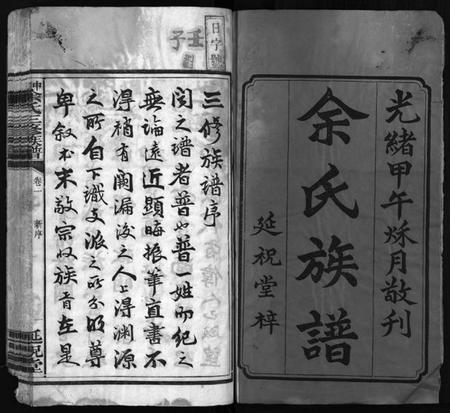 光緒甲午秌月敬刊
余氏族譜
延祝堂梓
日字號
壬子
三修族譜序
閱之譜者普也普一姓而紀之
無論遠近顯晦振筆直書不
得稍有闕漏後之人上得淵源
之所自下識支派之所分明尊
卑叙本末敬宗收族胥在是
余氏三修族譜
卷一
新序
延祝堂